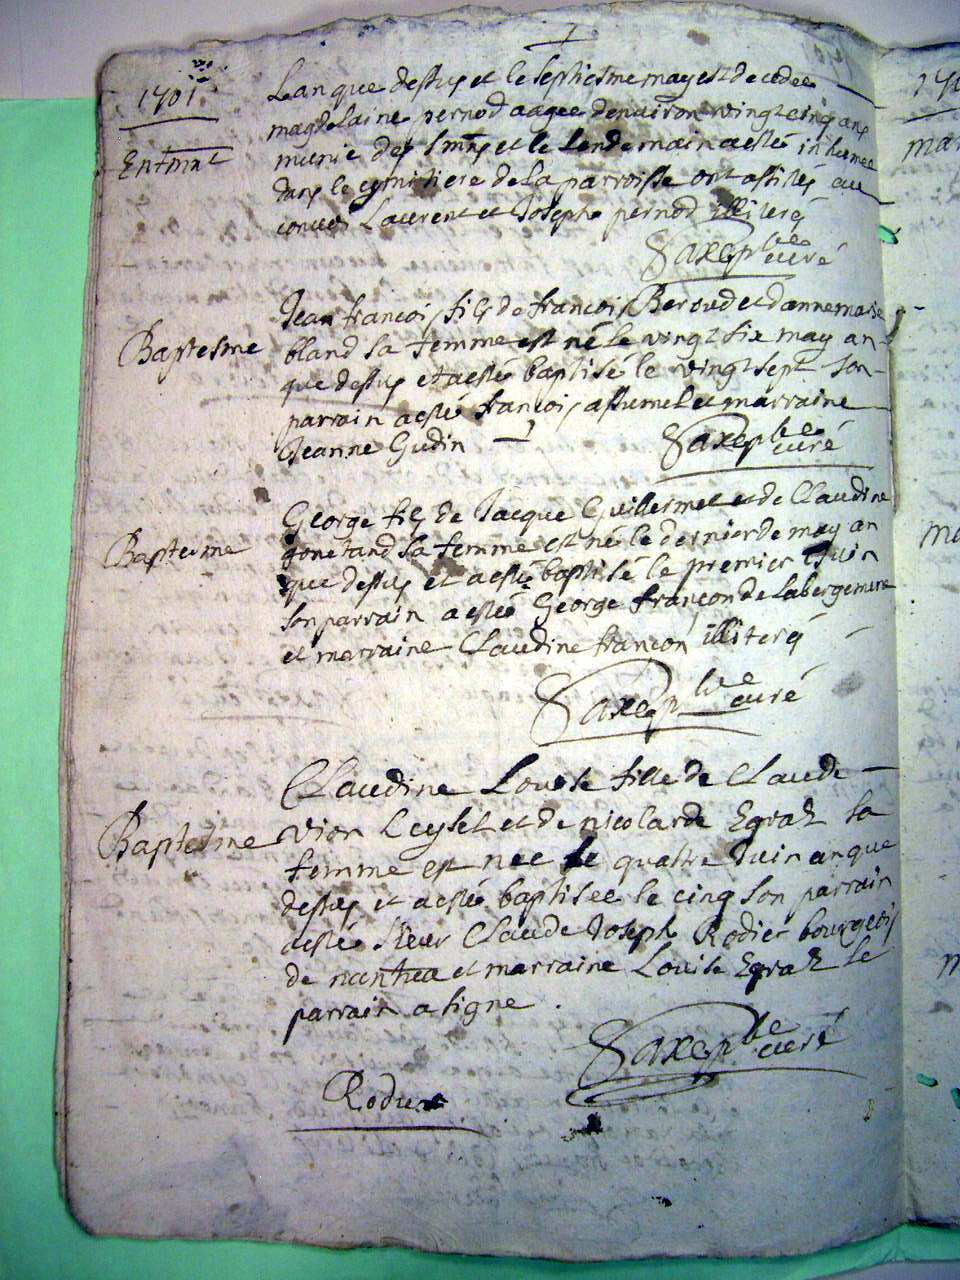 1701
Lan que dessus et le septiesme may est decedee
magdelaine pernod aagee denuiron vingt cinq ans
Entmnt
munie des smns et le lendemain a esté inhumee
dans le cymitiere de la parroisse ont assistes au
conuoi Laurent et Joseph pernod illiterés
Saxe plre curé
Baptesme
Jean francois fils de francois Beroud et danne marie
bland sa femme est né le vingt six may an
que dessus et a esté baptisé le vingt sept son
parrain a esté francois passumel et marraine
Jeanne Gudin
Saxe plre curé
Baptesme
George fils de Jacque Guillermet et de Claudine
gonetand sa femme est né le dernier de may an
que dessus et a esté baptisé le premier Juin
son parrain a esté George françon de labergement
et marraine Claudine françon illiterés
Saxe plre curé
Baptesme
Claudine Louise fille de Claude
vion Leyset et de nicolarde Egraz sa
femme est nee le quattre Juin an que
dessus et a esté baptisee le cinq son parrain
a esté sieur Claude Joseph Rodier bourgeois
de nantua et marraine Louise Egraz le
parrain a signe .
Saxe plre curé
Rodier